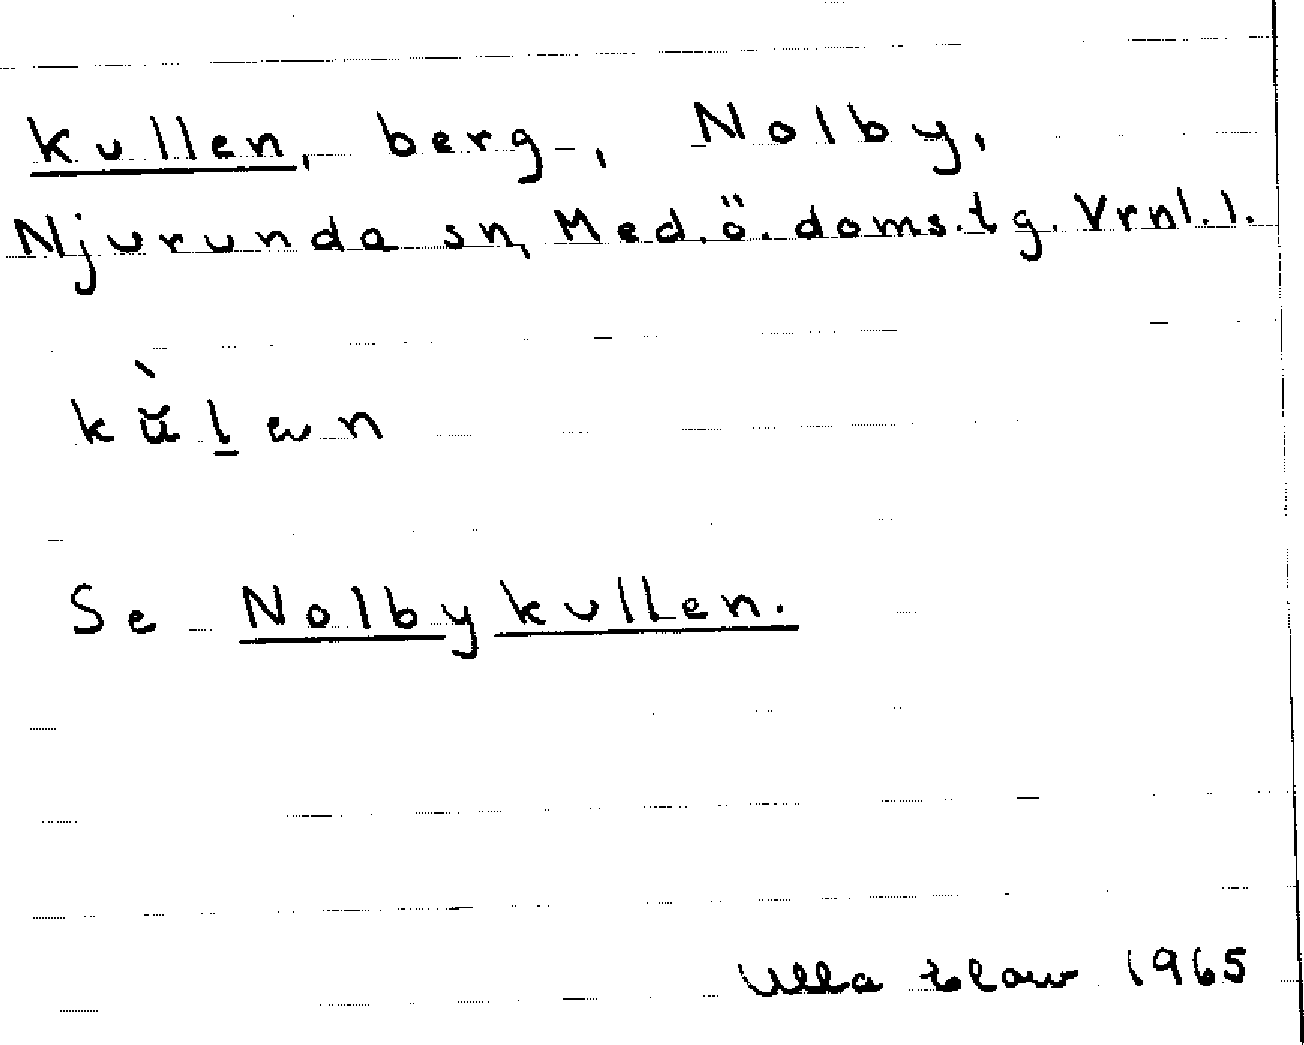 kullen, berg, Nolby,
Njurunda sn, Med. ö. doms. tg. Vrnl. l.
Se Nolbykullen.
Ulla 1965